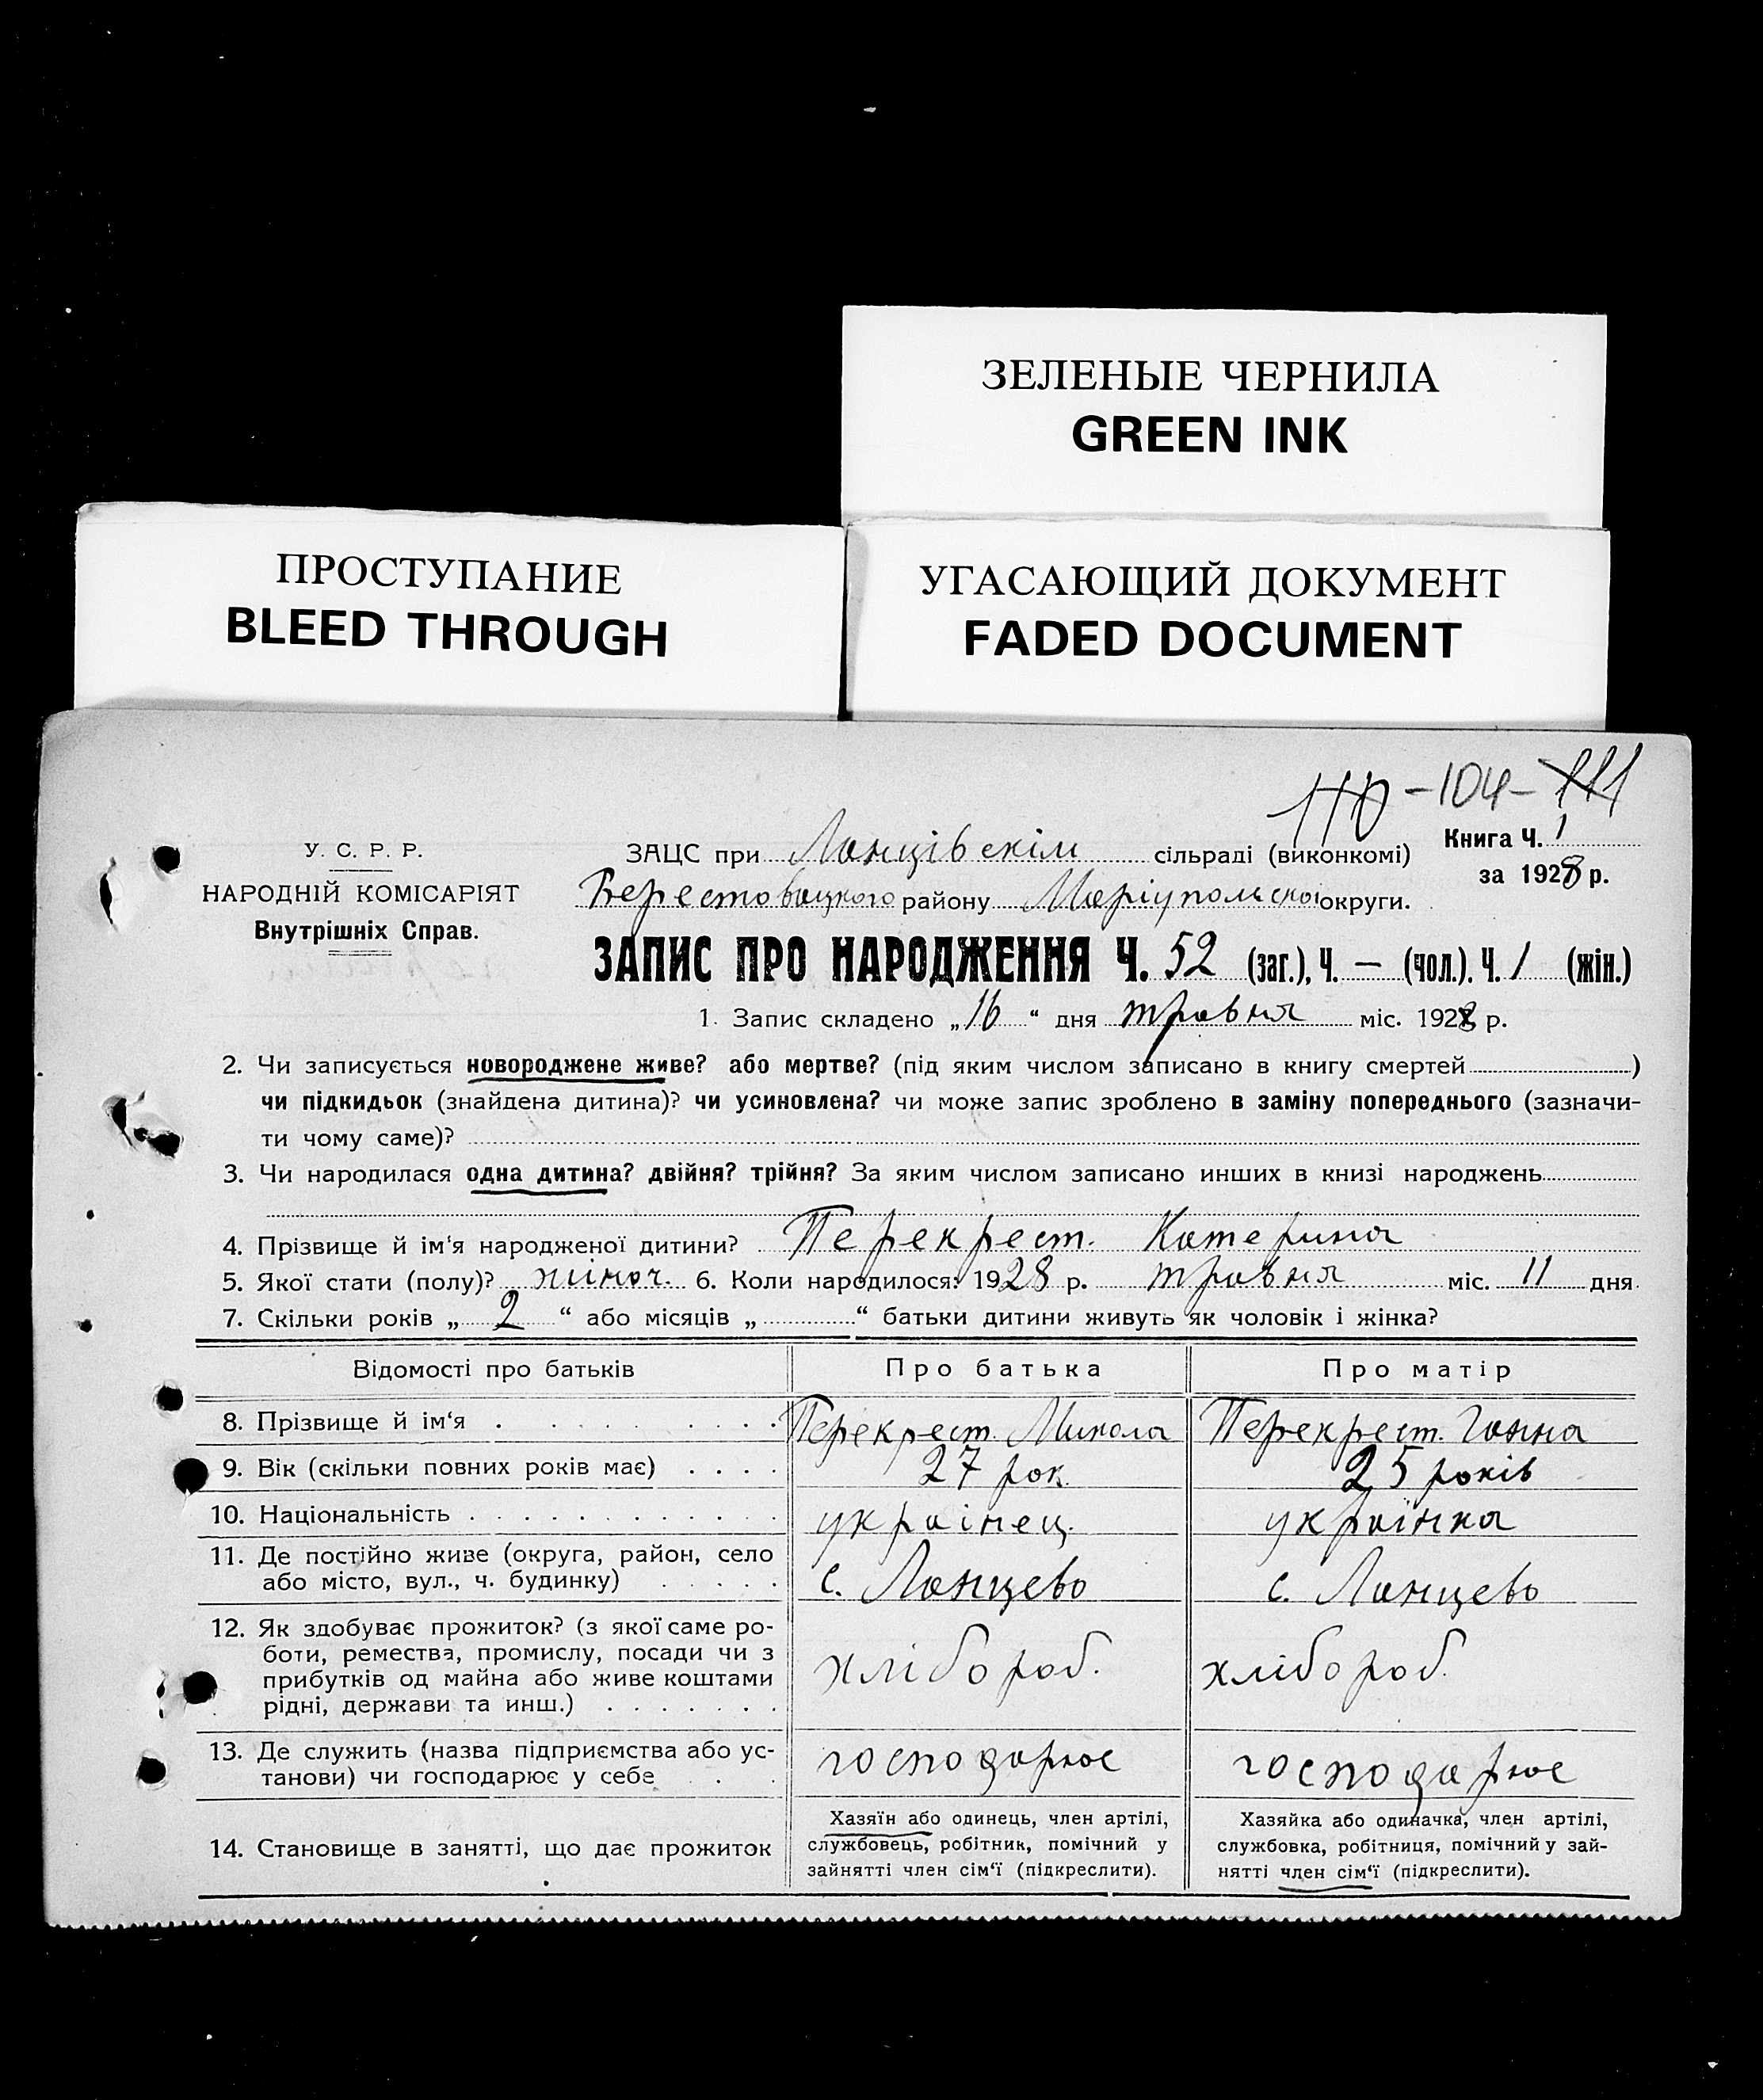 ЗЕЛЕНЫЕ ЧЕРНИЛА
GREEN INK
ПРОСТУПАНИЕ
BLEED THROUGH
УГАСАЮЩИЙ ДОКУМЕНТ
FADED DOCUMENT
110 -104- 111
У. С. Р. Р.
НАРОДНІЙ КОМІСАРІЯТ
Внутрішніх Справ.
ЗАЦС при Ланцівскім сільраді (виконкомі)
Книга Ч. 1
за 1928 р.
Берестовецкого району Маріупольскої округи.
ЗАПИС ПРО НАРОДЖЕННЯ Ч. 52 (заг.), Ч. — (чол.). Ч. 1 (жін.)
1. Запис складено „16“ дня травня міс. 1928 р.
2. Чи записується новороджене живе? або мертве? (під яким числом записано в книгу смертей)
чи підкидьок (знайдена дитина)? чи усиновлена? чи може запис зроблено в заміну попереднього (зазначи-
ти чому саме)?
3. Чи народилася одна дитина? двійня? трійня? За яким числом записано инших в книзі народжень
4. Прізвище й ім‘я народженої дитини? Перекрест. Катерина
5. Якої стати (полу)? жіноч. 6. Коли народилося: 1928 р. травня міс. 11 дня
7. Скільки років „ 2 “ або місяців „ “ батьки дитини живуть як чоловік і жінка?
Відомості про батьків Про батька Про матір
8. Прізвище й ім‘я Перекрест. Микола Перекрест. Ганна
9. Вік (скільки повних років має) 27 рок. 25 років
10. Національність украінец. украінка
11. Де постійно живе (округа, район, село
або місто, вул., ч. будинку) с. Ланцево с. Ланцево
12. Як здобуває прожиток? (з якої саме ро-
боти, ремества, промислу, посади чи з
прибутків од майна або живе коштами
рідні, держави та инш.) хлібороб. хлібороб.
13. Де служить (назва підприємства або ус-
танови) чи господарює у себе господарює господарює
14. Становище в занятті, що дає прожиток
Хазяїн або одинець, член артілі,
службовець, робітник, помічний у
зайнятті член сім‘ї (підкреслити).
Хазяйка або одиначка, член артілі,
службовка, робітниця, помічний у зай-
нятті член сім‘ї (підкреслити).